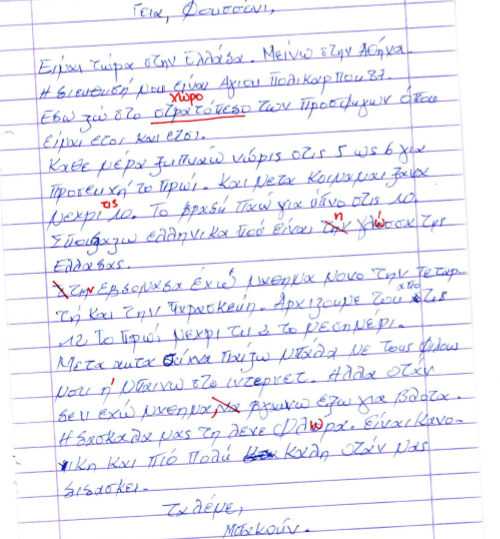 Γεια, Φουσσάνι,
Είμαι τώρα στην Ελλάδα. Μείνω στην Αθήνα.
Η διευθυσή μου είναι Αγιου Πολικαρπου 21.
χώρο
Εδω ζώ στο στρατόπεδο των Προσφυγων όπου
είμαι ετσι και ετσι.
Καθε μέρα ξυπναώ νώρις στις 5 ως 6 για
προσευχή το πρωί. Και μετα κοιμαμαι ξανα
τις
μεχρι 10. Το βραδή παώ για ύπνο στις 10.
η
Σπουδαζω ελληνικα που είναι την γλώσσα της
Ελλαδας.
Στην εβδομαδα έχω μαθημα μονο την Τεταρ-
τή και την Παρασκεύη. Αρχιζουμε
απο τις
12 το πρωί μεχρι τις 2 το μεσημέρι.
Μετα αυτα παίζω μπάλα με τους φίλους
μου ή μπαινω στο ιντερνετ. Αλλα στάν
δεν εχώ μαθημα, να βγαινω εξω για βλοτα.
Η δασκαλα μας τη λενε Φλωρα. Είναι κανο-
νικη και πιό πολύ καλη στάν μας
διδασκει.
Τα λέμε,
Μπακούν.